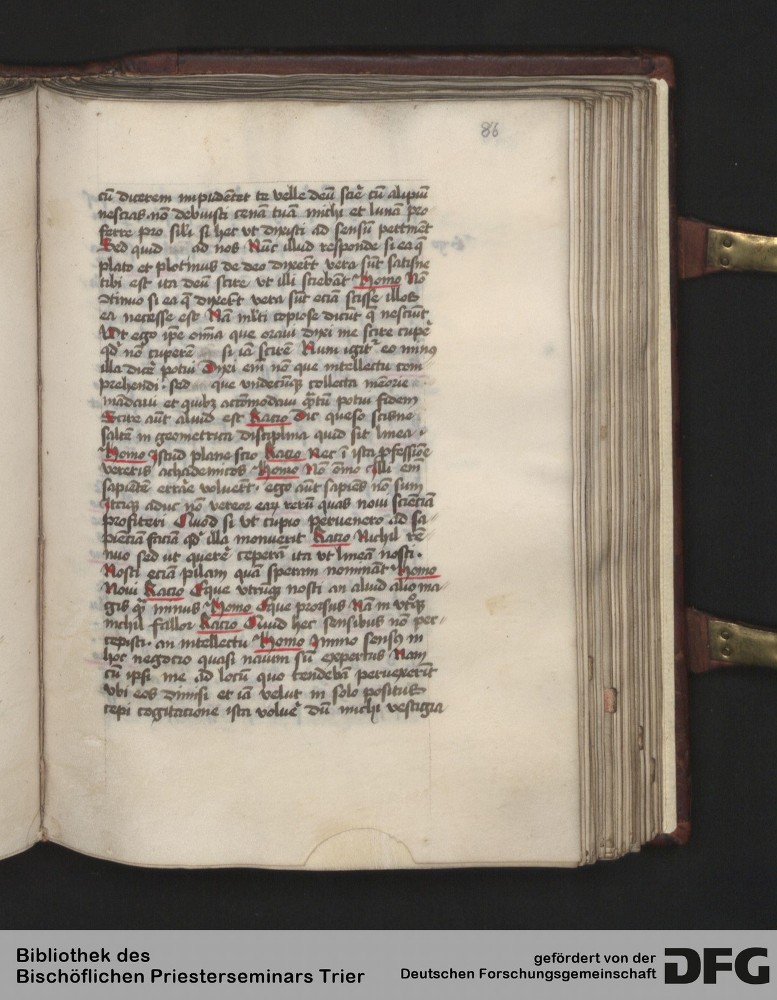 86
cū dicerem impudēter te velle deū scir̄e cū alipiū
nescias nō debuisti cenā tuā michi et lunā pro
ferre pro sili si hec ut dixisti ad sensū ꝑtinēt
Sed quid ad nos Nūc illud responde si ea q̄
plato et plotinus de deo dixer̄t vera sūt satisne
tibi est ita deū scire ut illi sciebāt Homo Nō
ↄtinuo si ea q̄ dixer̄t vera sūt eciā scisse illos
ea necesse est Nā ml̄ti copiose dicūt q̄ nesciūt
Ut ego ip̄e om̄ia que oravi dixi me scire cupe᷑
qd̄ nō cuperē si iā scirē Num igit᷑ eo minꝰ
illa dice᷑ potui Dixi em̄ nō que intellectu com
prehendi . sed que undecūqꝫ collecta memorie
mādavi et quibꝫ accōmodavi q̄ntū potui fidem
Scire aūt aliud est Racio Dic queso scisne
saltē in geometrica disciplina quid sit linea .
Homo Istud plane scio Racio Nec ī ista ꝓfessiōe
vereris achademicos Homo Nō om̄ino Illi em̄
sapiētē errare voluer̄t . ego aūt sapiēs nō sum
Itaqꝫ aduc nō vereor eaꝝ rerū quas novi scienciā
profiteri Quod si ut cupio pervenero ad sa
pienciā faciā qd̄ illa monuerit Racio Nichil re
nuo sed ut quere᷑ ceperā ita ut lineā nosti .
Nosti eciā pilam quā speram nomināt Homo
Novi Racio Eque utrūqꝫ nosti an aliud alio ma
gis q̄ minus Homo Eque prorsus Nā in utroqꝫ
nichil fallor Racio Quid hec sensibus nō per
cepisti . an intellectu Homo Immo sensꝰ in
hoc negocio quasi navim sū expertus Nam
cū ipsi me ad locū quo tendebā pervexerīt
ubi eos dimisi et iā velut in solo positus
cepi cogitacione ista volue᷑ diu michi vestigia
Bibliothek des
Bischöflichen Priesterseminars Trier
gefördert von der
Deutschen Forschungsgemeinschaft
DFG